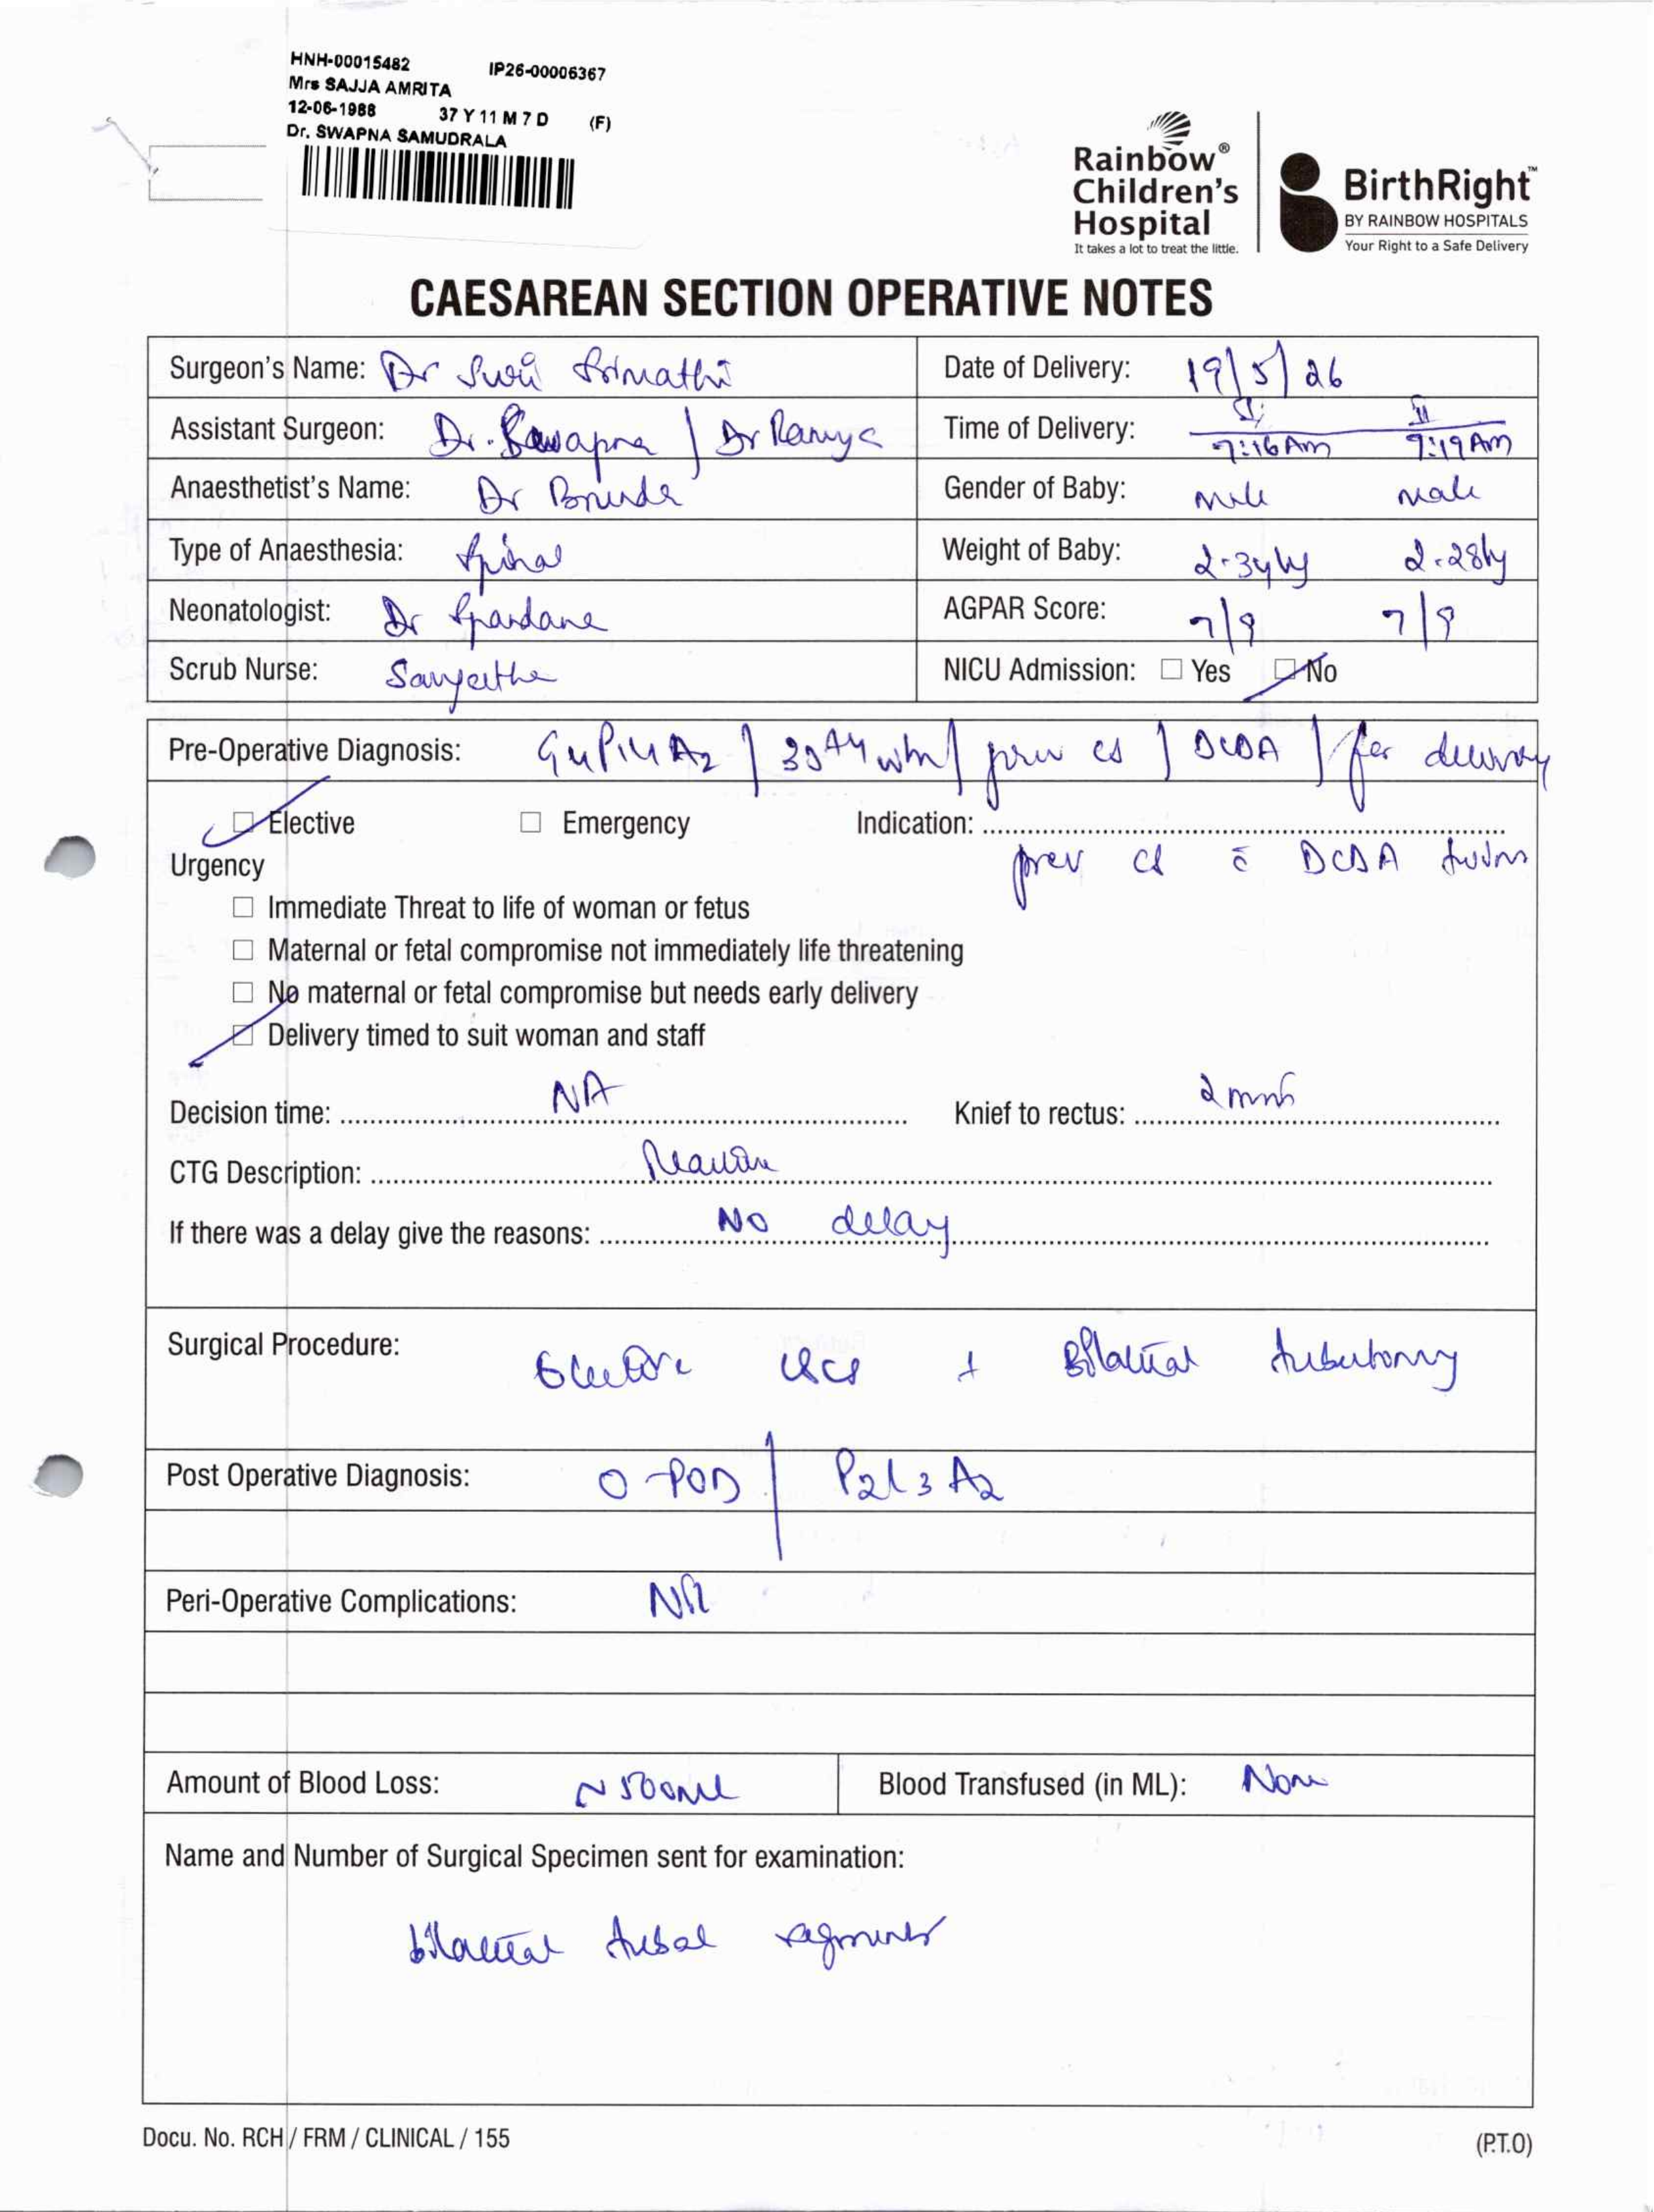 HNH-00015482 IP26-00006367
Mrs SAJJA AMRITA
12-06-1988 37 Y 11 M 7 D (F)
Dr. SWAPNA SAMUDRALA
Rainbow®
Children's
Hospital
It takes a lot to treat the little.
BirthRight™
BY RAINBOW HOSPITALS
Your Right to a Safe Delivery
CAESAREAN SECTION OPERATIVE NOTES
Surgeon's Name: Dr Date of Delivery: 19/5/26
Assistant Surgeon: Dr. Swapna / Dr Ramya Time of Delivery: I 9:16 Am II 9:19 Am
Anaesthetist's Name: Dr Gender of Baby: male male
Type of Anaesthesia: Spinal Weight of Baby: 2.34kg 2.28kg
Neonatologist: Dr Spandana AGPAR Score: 7/9 7/9
Scrub Nurse: Sangeetha NICU Admission: ☐ Yes ☑ No
Pre-Operative Diagnosis: G4P1L1A2 / prev cs / DCDA / for delivery
☑ Elective ☐ Emergency Indication:
Urgency prev cs c̄ DCDA twins
☐ Immediate Threat to life of woman or fetus
☐ Maternal or fetal compromise not immediately life threatening
☐ No maternal or fetal compromise but needs early delivery
☑ Delivery timed to suit woman and staff
Decision time: NA Knief to rectus: 2 mins
CTG Description:
If there was a delay give the reasons: No delay
Surgical Procedure: Elective LSCS + Bilateral tubectomy
Post Operative Diagnosis: 0-POD / P2L3A2
Peri-Operative Complications: Nil
Amount of Blood Loss: ~500ml Blood Transfused (in ML): None
Name and Number of Surgical Specimen sent for examination:
bilateral tubal segments
Docu. No. RCH / FRM / CLINICAL / 155 (P.T.O)